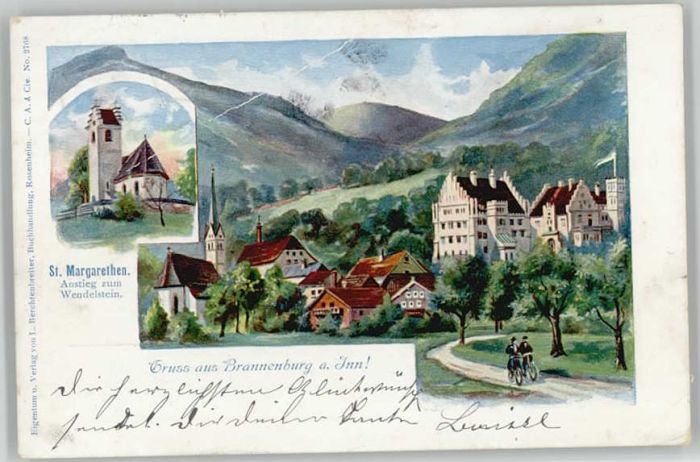 Eigentum u. Verlag von L. Berchtenbreiter, Buchhandlung, Rosenheim. — C. A. & Cie. No. 2708
St. Margarethen.
Anstieg zum
Wendelstein.
Gruss aus Brannenburg a. Inn!
Die herzlichsten Glückwünsche
sendet Dir Deine Tante